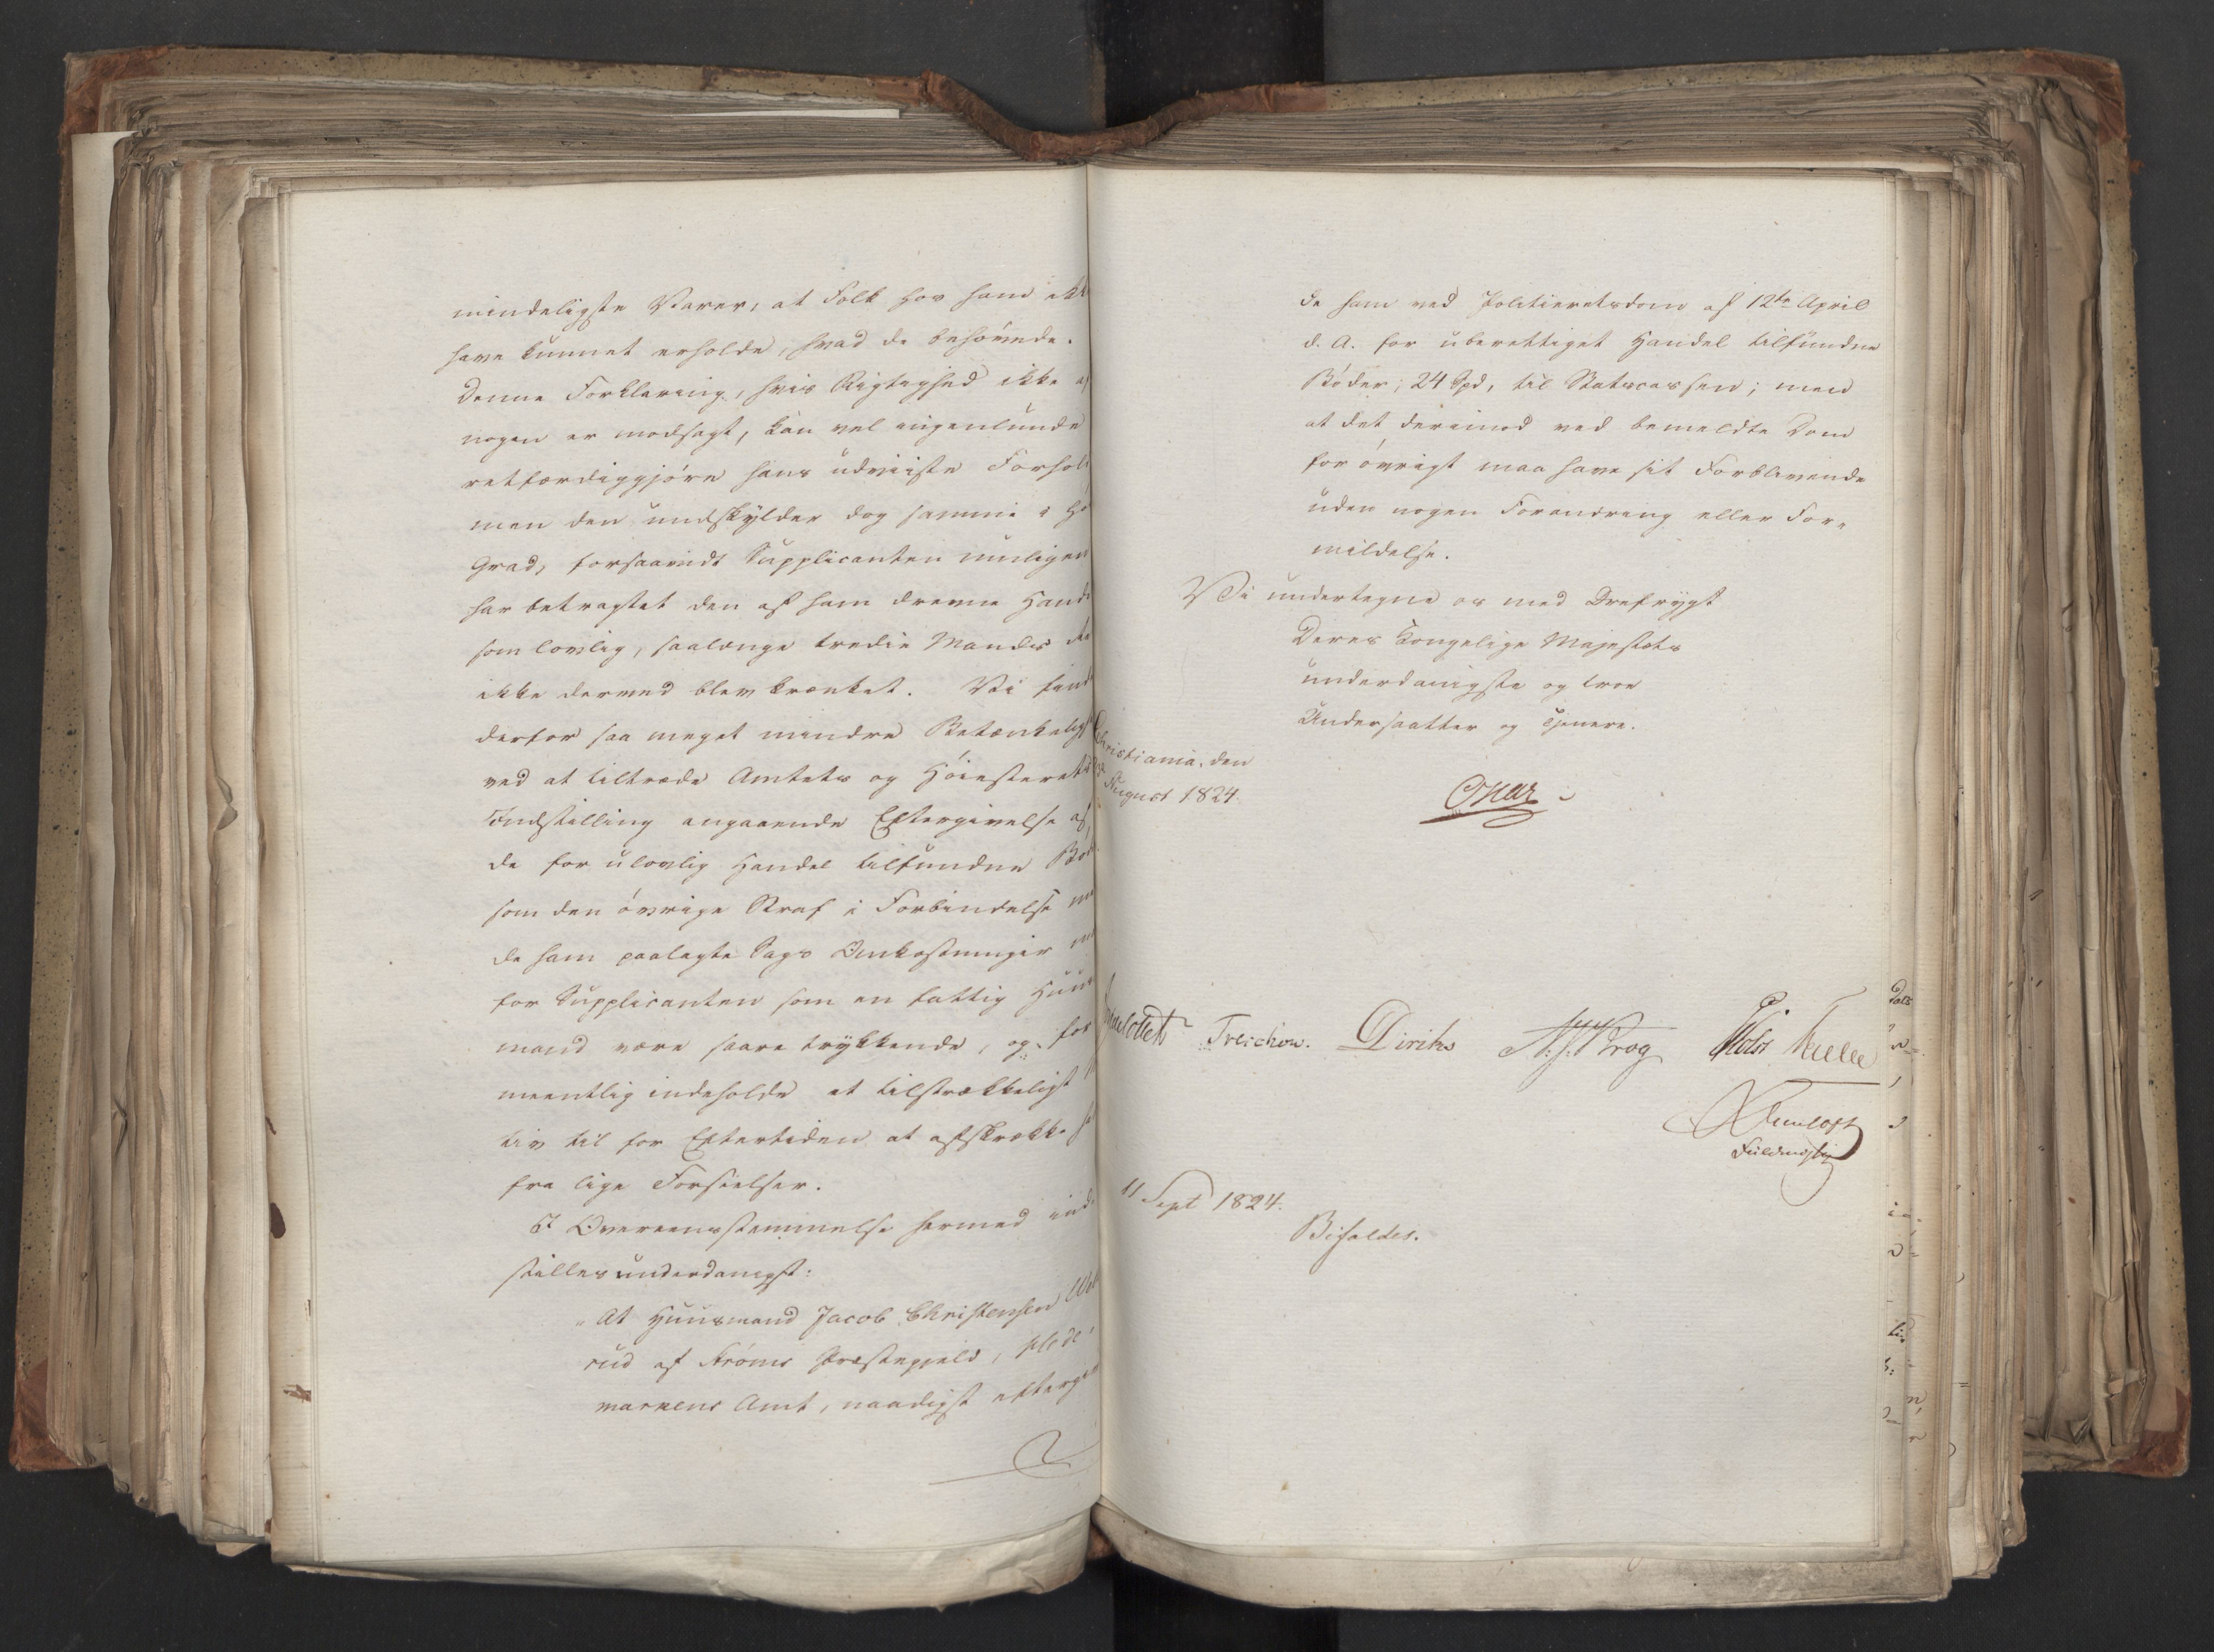 mindeligste Varer, at Folk hos ham ikk
have kunnet erholde, hvad de behövede.
Denne Forklaring, hvis Rigtighed ikke af
nogen er modsagt, kan vel ingenlunde
retfærdiggjöre hans udviiste Forhold
men den undskylder dog samme i Hö
Grad, forsaavidt Supplicanten rimeligen
har betragtet den af ham drevne Hand
som lovlig, saalænge tredie Mands
ikke dermed blev krænket. Vi find
derfor saa meget mindre Betænkelig
ved at tiltræde Amtets og Höiesterets
Indstilling angaaende Eftergivelse af
de for ulovlig Handel tilfundne Bød
som den övrige Straf i Forbindelse me
de ham paalagte Sags Omkostninger
for Supplicanten som en fattig Huus
mand være saare trykkende, og for
meentlig indeholde et tilstrækkeligt
tiv til for Eftertiden at afskrække h
fra lige Forseelser.
I Overeensstemmelse hermed ind
stilles underdanigst:
"At Huusmand Jacob Christensen
rud af Ströms Præstegjeld, Hede
markens Amt, naadigst eftergiv
de ham ved Politieretsdom af 12te April
d. A. for uberettiget Handel tilfundne
Böder, 24 Spd, til Statscassen; men
at det derimod ved bemeldte Dom
for övrigt maa have sit Forblivende
uden nogen Forandring eller For-
mildelse.
Vi undertegne os med Ærefrygt
Deres Kongelige Majestæts
underdanigste og troe
Undersaatter og Tjenere.
Christiania, den
August 1824.
Oscar
Treschow. Diriks Krog Motzfeldt
Fuldmægtig
11 Sept 1824.
Bifaldes.